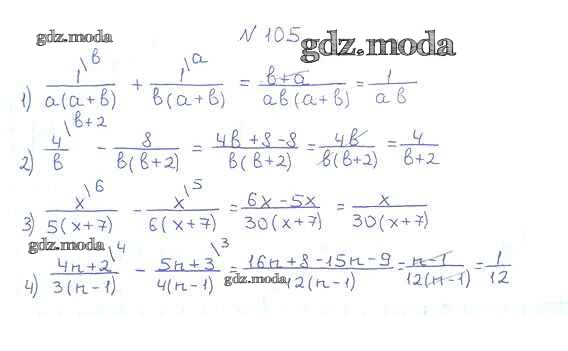 gdz.moda
N 105
gdz.moda
1) 1\b / a(a+b) + 1\a / b(a+b) = b+a / ab(a+b) = 1 / ab
2) 4\b+2 / b - 8 / b(b+2) = 4b+8-8 / b(b+2) = 4b / b(b+2) = 4 / b+2
3) x\6 / 5(x+7) - x\5 / 6(x+7) = 6x-5x / 30(x+7) = x / 30(x+7)
gdz.moda
4) 4n+2\4 / 3(n-1) - 5n+3\3 / 4(n-1) = 16n+8-15n-9 / 12(n-1) = n-1 / 12(n-1) = 1 / 12
gdz.moda